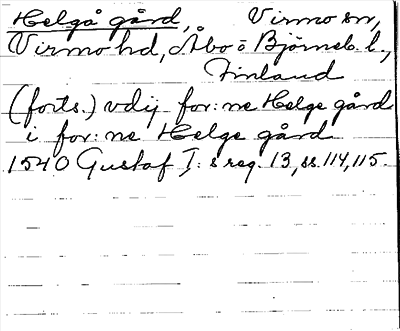 Helgå gård, Virmo sn,
Virmo hd, Åbo o Björneb. l.,
Finland
(forts.) vdij for: ne Helge gård
i for: ne Helge gård
1540 Gustaf I: s reg. 13, ss. 114, 115.